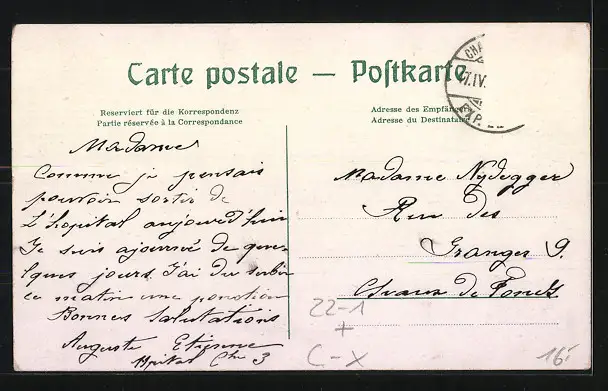 Carte postale — Postkarte
Reserviert für die Korrespondenz
Partie réservée à la Correspondance
Adresse des Empfängers
Adresse du Destinataire
CHA
7.IV.
Madame
Comme je pensais
pouvoir sortir de
L'hopital aujourd'huis
Je suis ajourné de quel-
lques jours J'ai du subir
ce matin une ponction
Bonnes Salutations
Auguste Etienne
Hpital Che 3
Madame Nydegger
Rue des
Granges 9.
Chaux de Fonds
22-1
+
C-X
16.-